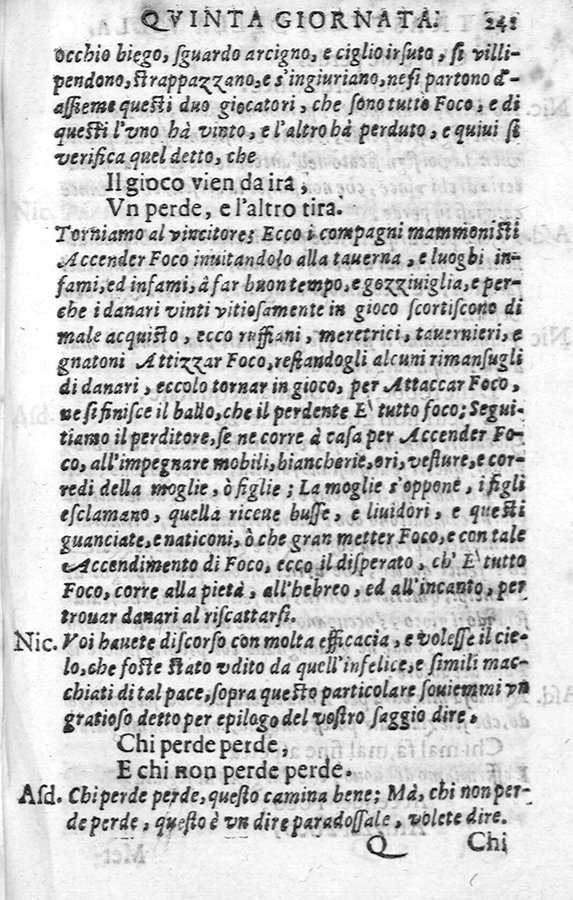 QVINTA GIORNATA. 241
occhio biego, sguardo arcigno, e ciglio irsuto, si villi-
pendono, strappazzano, e s'ingiuriano, ne si partono d'-
assieme questi duo giocatori, che sono tutto Foco, e di
questi l'vno hà vinto, e l'altro hà perduto, e quiui si
verifica quel detto, che
Il gioco vien da ira,
Vn perde, e l'altro tira.
Torniamo al vincitore; Ecco i compagni mammonisti
Accender Foco inuitandolo alla tauerna, e luoghi in-
fami, ed infami, à far buon tempo, e gozziuiglia, e per-
che i danari vinti vitiosamente in gioco scortiscono di
male acquisto, ecco ruffiani, meretrici, tauernieri, e
gnatoni Attizzar Foco, restandogli alcuni rimansugli
di danari, eccolo tornar in gioco, per Attaccar Foco,
ne si finisce il ballo, che il perdente E' tutto foco; Segui-
tiamo il perditore, se ne corre à casa per Accender Fo-
co, all'impegnare mobili, biancherie, ori, vesture, e cor-
redi della moglie, ò figlie; La moglie s'oppone, i figli
esclamano, quella riceue busse, e liuidori, e questi
guanciate, e naticoni, ò che gran metter Foco, e con tale
Accendimento di Foco, ecco il disperato, ch' E' tutto
Foco, corre alla pietà, all'hebreo, ed all'incanto, per
trouar danari al riscattarsi.
Nic. Voi hauete discorso con molta efficacia, e volesse il cie-
lo, che foste stato vdito da quell'infelice, e simili mac-
chiati di tal pace, sopra questo particolare souiemmi vn
gratioso detto per epilogo del vostro saggio dire,
Chi perde perde,
E chi non perde perde.
Asd. Chi perde perde, questo camina bene; Mà, chi non per-
de perde, questo è vn dire paradossale, volete dire.
Q Chi